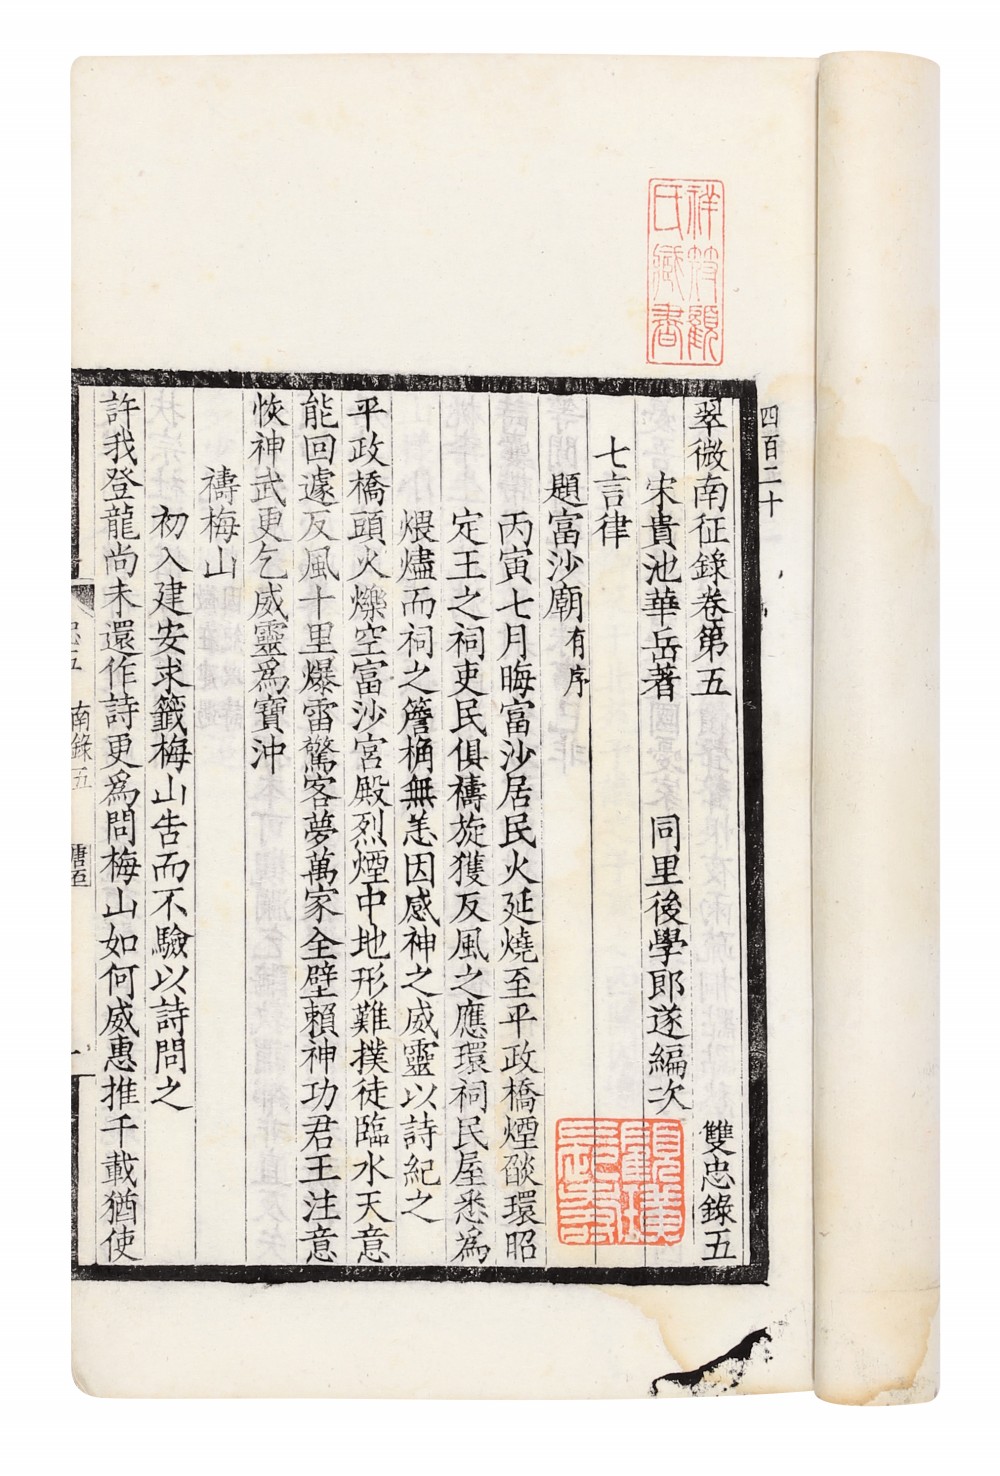 四百二十
翠微南征錄卷第五 雙忠錄五
宋貴池華岳著 同里後學郎遂編次
七言律
題富沙廟有序
丙寅七月晦富沙居民火延燒至平政橋煙燄環昭
定王之祠吏民俱禱旋獲反風之應環祠民屋悉為
煨燼而祠之簷桷無恙因感神之威靈以詩紀之
平政橋頭火爍空富沙宮殿烈煙中地形難撲徒臨水天意
能回遽反風十里爆雷驚客夢萬家全壁賴神功君王注意
恢神武更乞威靈爲寶沖
禱梅山
初入建安求籤梅山告而不驗以詩問之
許我登龍尚未還作詩更爲問梅山如何威惠推千載猶使
南錄五
祥符顧
氏藏書
顧璜